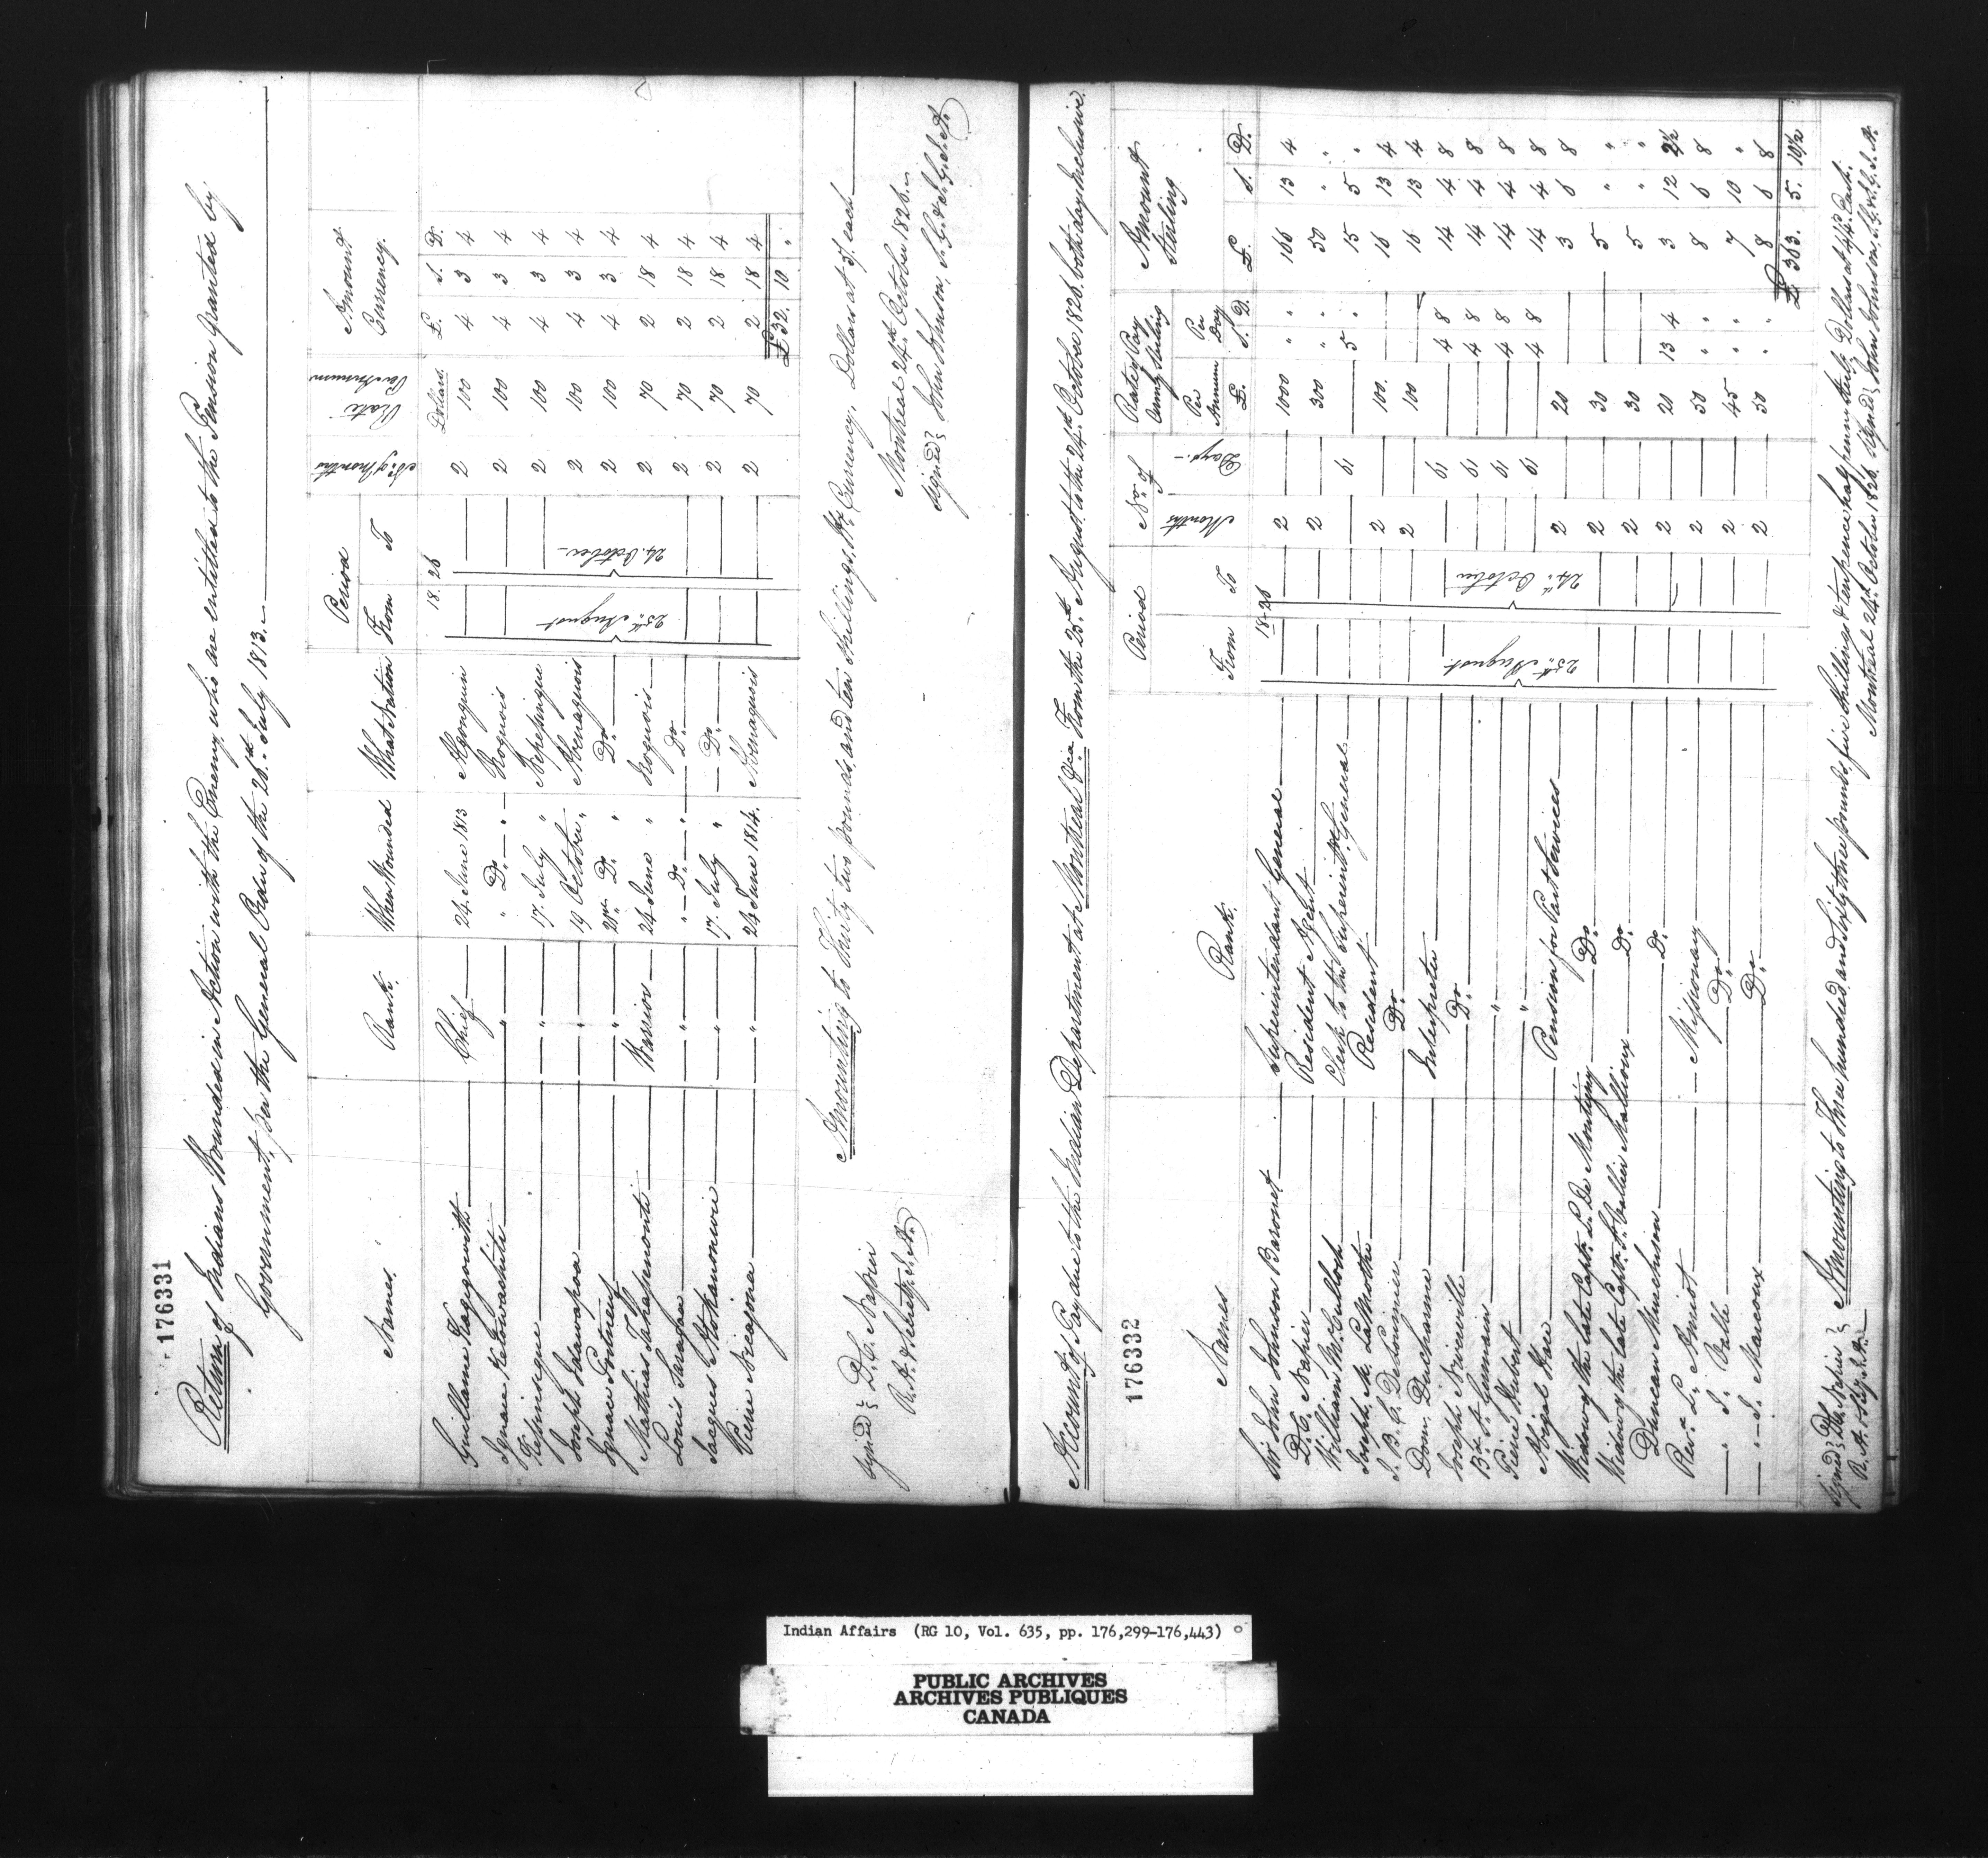 176331
Return of Indians Wounded in Action with the Enemy, who are entitled to the Pension granted by
Government, per the General Order of the 26th July 1813.
Names. Rank. When Wounded What Nation Period From To No. of Months Rate Per Annum Amount Currency.
18 26 Dollars. £. S. D.
25th August 24. October
Guillaume Chief 24. June 1813 Algonquin 2 100 4 3 4
Ignace " " Do. " Iroquois 2 100 4 3 4
" 17. July " Nepepingue 2 100 4 3 4
Joseph " 19 October " Abenaquois 2 100 4 3 4
Ignace Portneuf " Do. " Do. 2 100 4 3 4
Mathias Warrior 24 June " Iroquois 2 70 2 18 4
Louis " " Do. " Do. 2 70 2 18 4
Jacques " 17. July " Do. 2 70 2 18 4
Pierre " 24 June 1814. Abenaquois 2 70 2 18 4
£ 32. 10 "
Amounting to Thirty two pounds, and ten Shillings, Currency, Dollars at 5/. each
Montreal 24th October 1826.
Signed } D. C. Napier
R. A. & Secrety. I. A.
Signed } John Johnson, S. G. & I. G. I. A.
176332
Account of Pay due to the Indian Department at Montreal &ca. From the 25th August to the 24th October 1826. both days inclusive.
Names Rank. Period From To No. of Months Days. Rate of Pay Army Sterling Per Annum Per Day Amount Sterling
18 26 £. S. D. £. S. D.
25th August. 24th October
Sir John Johnson Baronet Superintendant General 2 1000 " " 166 13 4
D. C. Napier Resident Agent 2 300 " " 50 " "
William McCulloch Clerk to the Superintdt. General 61 5 " 15 5 "
Joseph M. LaMothe Resident 2 100. 16 13 4
J. B. C. DeLorimier Do. 2 100 16 13 4
Dom. Ducharme Interpreter 61 4 8 14 4 8
Joseph Niverville Do. 61 4 8 14 4 8
Bte. St. Germain " 61 4 8 14 4 8
Pierre Hubert " 61 4 8 14 4 8
Abigal Hare Pension for Past Services 2 20 3 6 8
Widow of the late Captn. L. De Montigny Do. 2 30 5 " "
Widow of the late Capt. St. Vallier Mallioux Do. 2 30 5 " "
Duncan Murchison Do. 2 20 13 4 3 12 2½
Revd. L. Amiot Missionary 2 50 " " 8 6 8
" J. Vallé Do. 2 45 " " 7 10 "
" J. Marcoux Do. 2 50 " " 8 6 8
£ 363. 5. 10½
Amounting to Three hundred and Sixty three pounds, five Shillings & ten pence half penny Sterlg. Dollars at 4/4d. Each.
Montreal 24th October 1826.
Signed } D. C. Napier
R. A. & Secy. I. A.
Signed } John Johnson, S. G. & I. G. I. A.
Indian Affairs (RG 10, Vol. 635, pp. 176,299-176,443)
PUBLIC ARCHIVES
ARCHIVES PUBLIQUES
CANADA